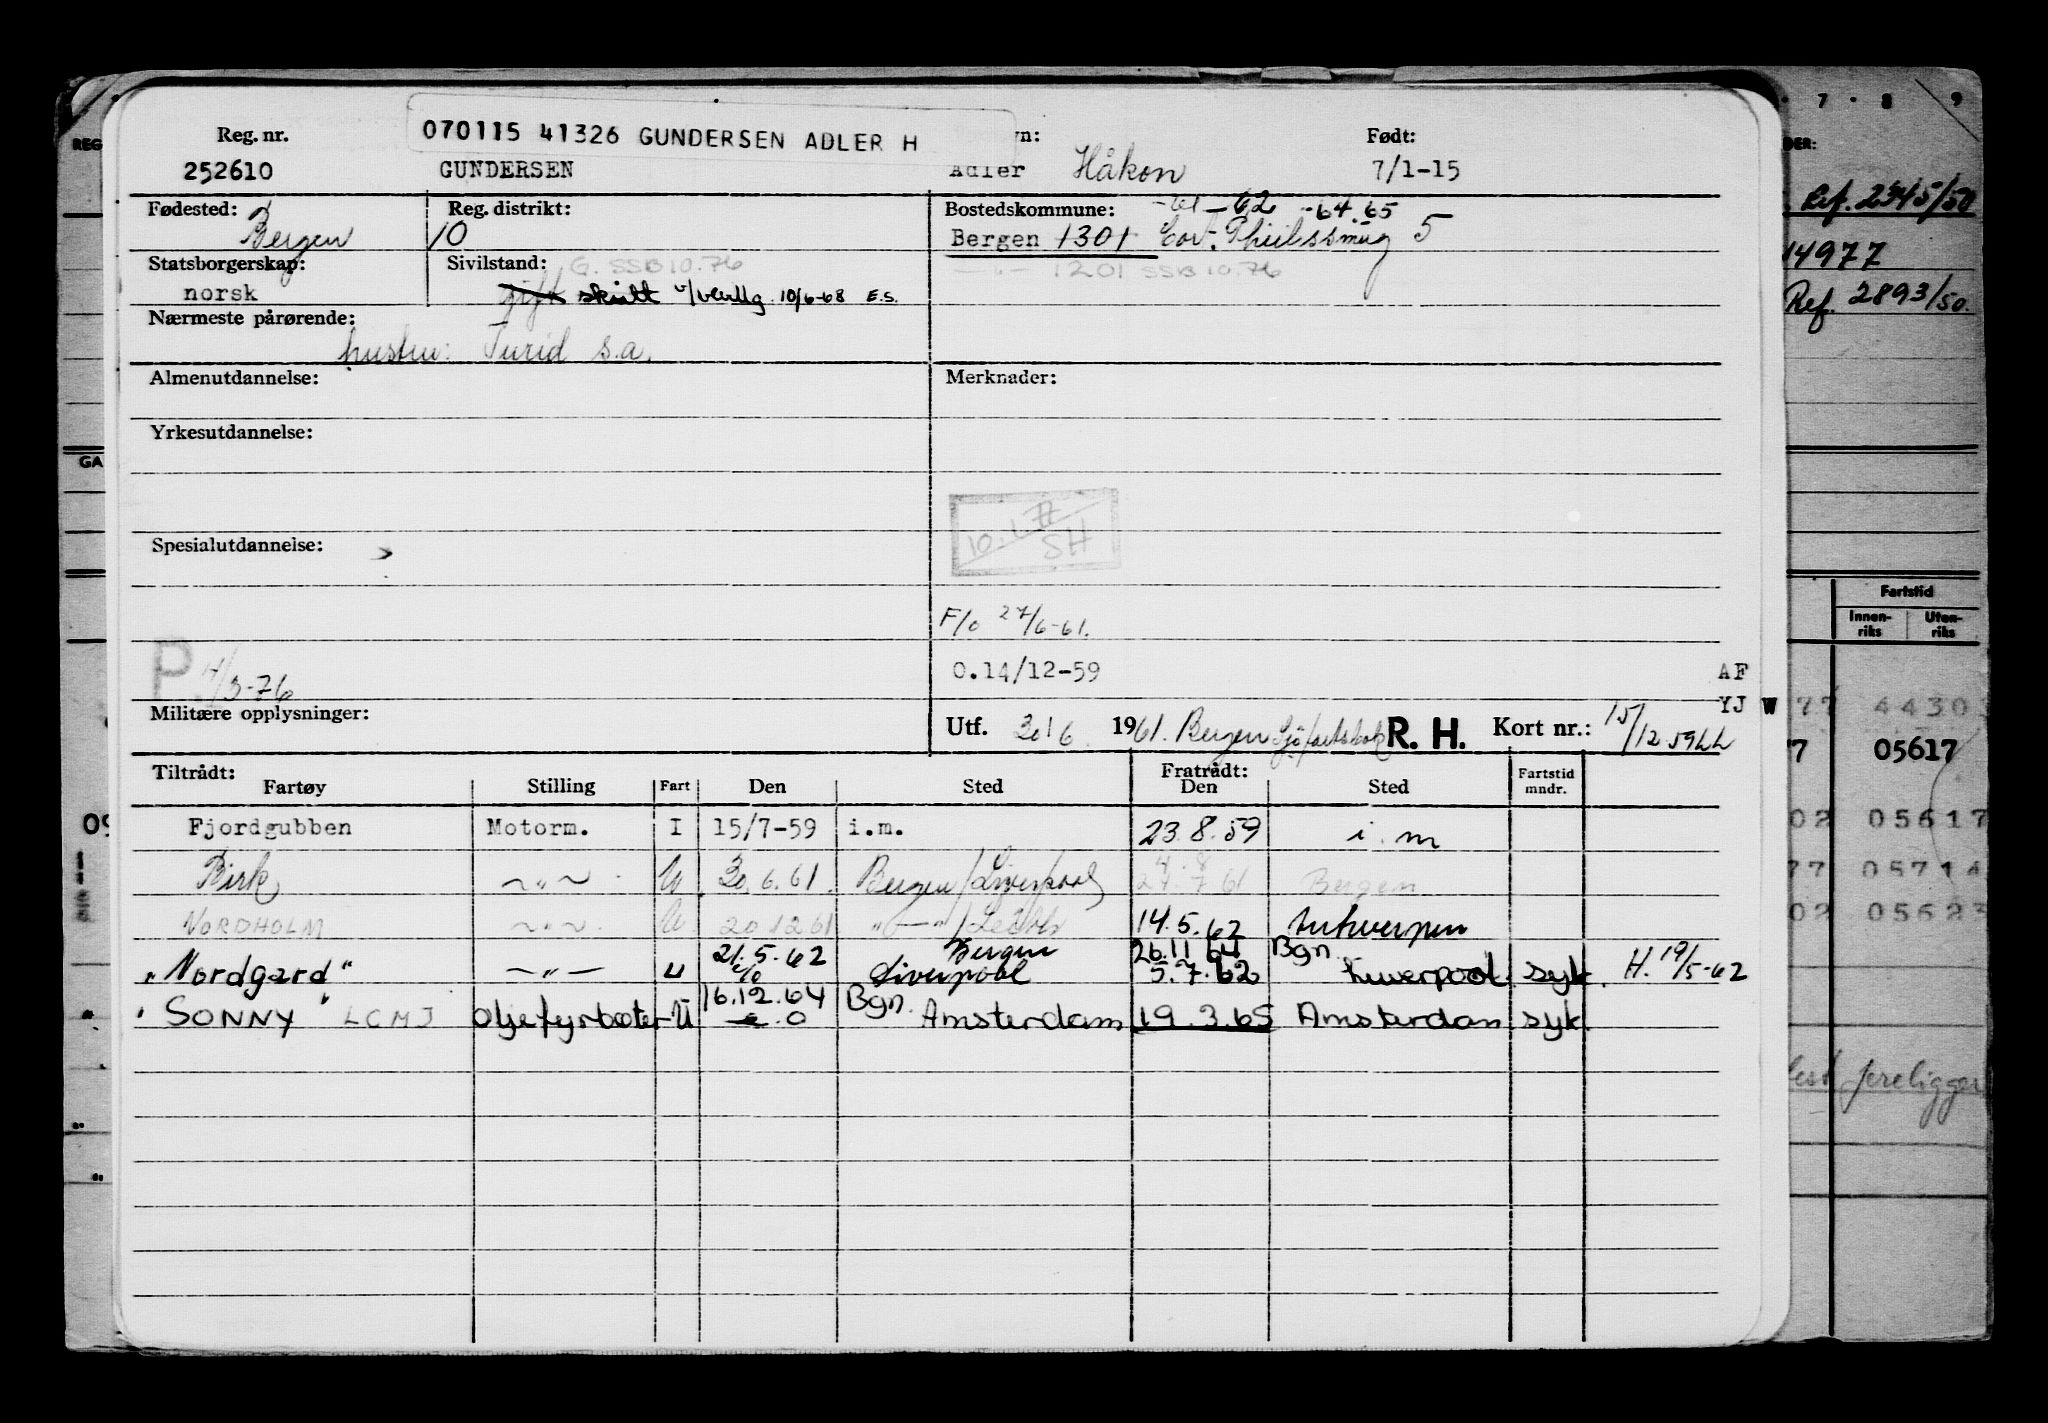 7 · 8 9
REG
Reg. nr.
070115 41326 GUNDERSEN ADLER H
Født:
252610
GUNDERSEN
Adler Håkon
7/1-15
Ref. 2345/50
Fødested:
Bergen
Reg. distrikt:
10
Bostedskommune:
-61 -62 -64.65
Bergen 1301
5
14977
Statsborgerskap:
norsk
Sivilstand: G. SSB 10.76
gift skilt v/bevllg. 10/6-68 E.S.
-"- 1201 SSB 10.76
Ref. 2893/50.
Nærmeste pårørende:
hustru: Turid s.a.
Almenutdannelse:
Merknader:
Yrkesutdannelse:
GA
10.1.77
SH
Spesialutdannelse:
F/o 27/6-61.
Fartstid
Innen-riks
Uten-riks
P. 4/3-76
0.14/12-59
AF
YJ W
77 44303
Militære opplysninger:
Utf. 30/6 1961. Bergen Sjøfartskok R. H. Kort nr.: 15/12 59 LL
7 05617
Tiltrådt:
Fartøy
Stilling
Fart
Den
Sted
Fratrådt:
Den
Sted
Fartstid mndr.
Fjordgubben Motorm. I 15/7-59 i.m. 23.8.59 i.m
02 05617
Birk -"- U 30.6.61. Bergen/Liverpool 4.8 24.7 61 Bergen
77 05714
NORDHOLM -"- U 20 12 61 "-" / 14.5.62 Antwerpen
02 05623
"Nordgard" -"- U 21.5.62 % Bergen Liverpool 26.11 64 5.7.62 Bgn. Liverpool. syk. H. 19/5-62
"SONNY" LCMJ Oljefyrbøter U 16.12.64 Bgn. Amsterdam 19.3.65 Amsterdam syk.
foreligger